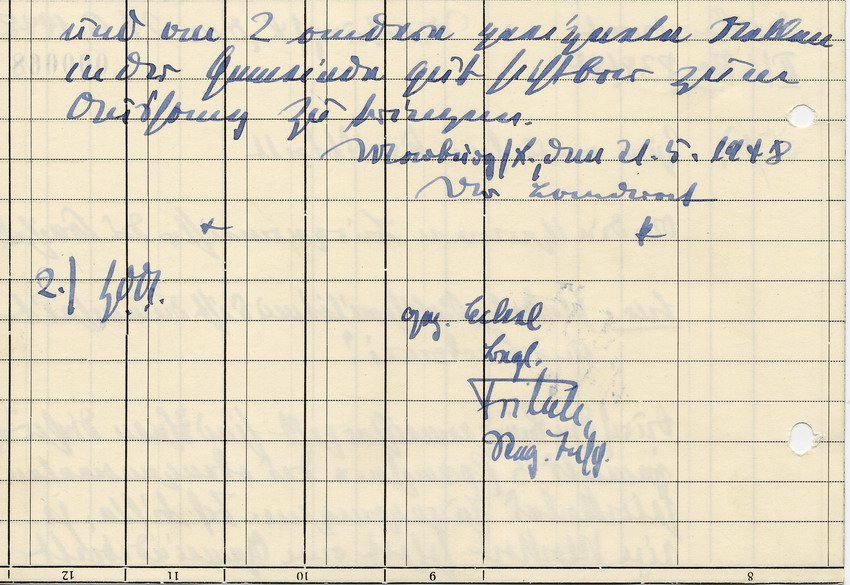 und an 2 andern geeigneten Stellen
in der Gemeinde gut sichtbar zum
Aushang zu bringen.
Marburg/L., den 21.5.1948
Der Landrat
2.) z.d.A.
gez. 
begl.
Reg. Insp.
12 11 10 9 8